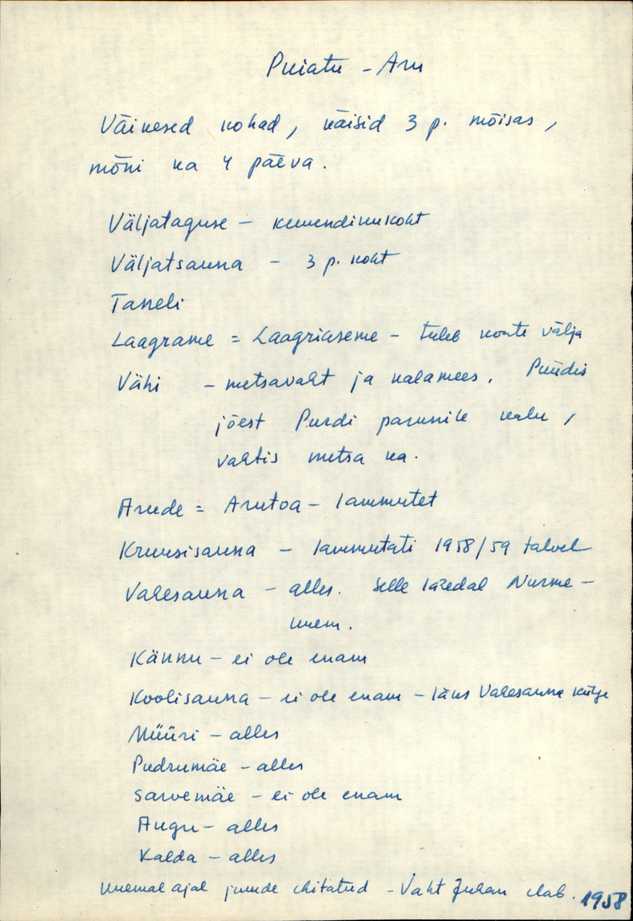 Puiatu - Aru
Väikesed kohad, käisid 3 p. mõisas,
mõni ka 4 päeva.
Väljataguse - kümendiku koht
Väljatsauna - 3 p. koht
Tasneli
Laagrame = Laagriaseme - tuleb konte välja
Vähi - metsavaht ja kalamees. Püüdis
jõest Purdi parunile kalu,
vahtis metsa ka.
Arude = Arutoa - lammutet
Kruusisauna - lammutati 1958/59 talvel
Vahesauna - alles. Selle lähedal Nurme-
mem.
Kännu - ei ole enam
Koolisauna - ei ole enam - läks Vahesauna külge
Müüri - alles
Pudrumäe - alles
Sarvemäe - ei ole enam
Augu - alles
Kalda - alles
ajal juurde ehitatud - Vaht Juhan elab. 1958